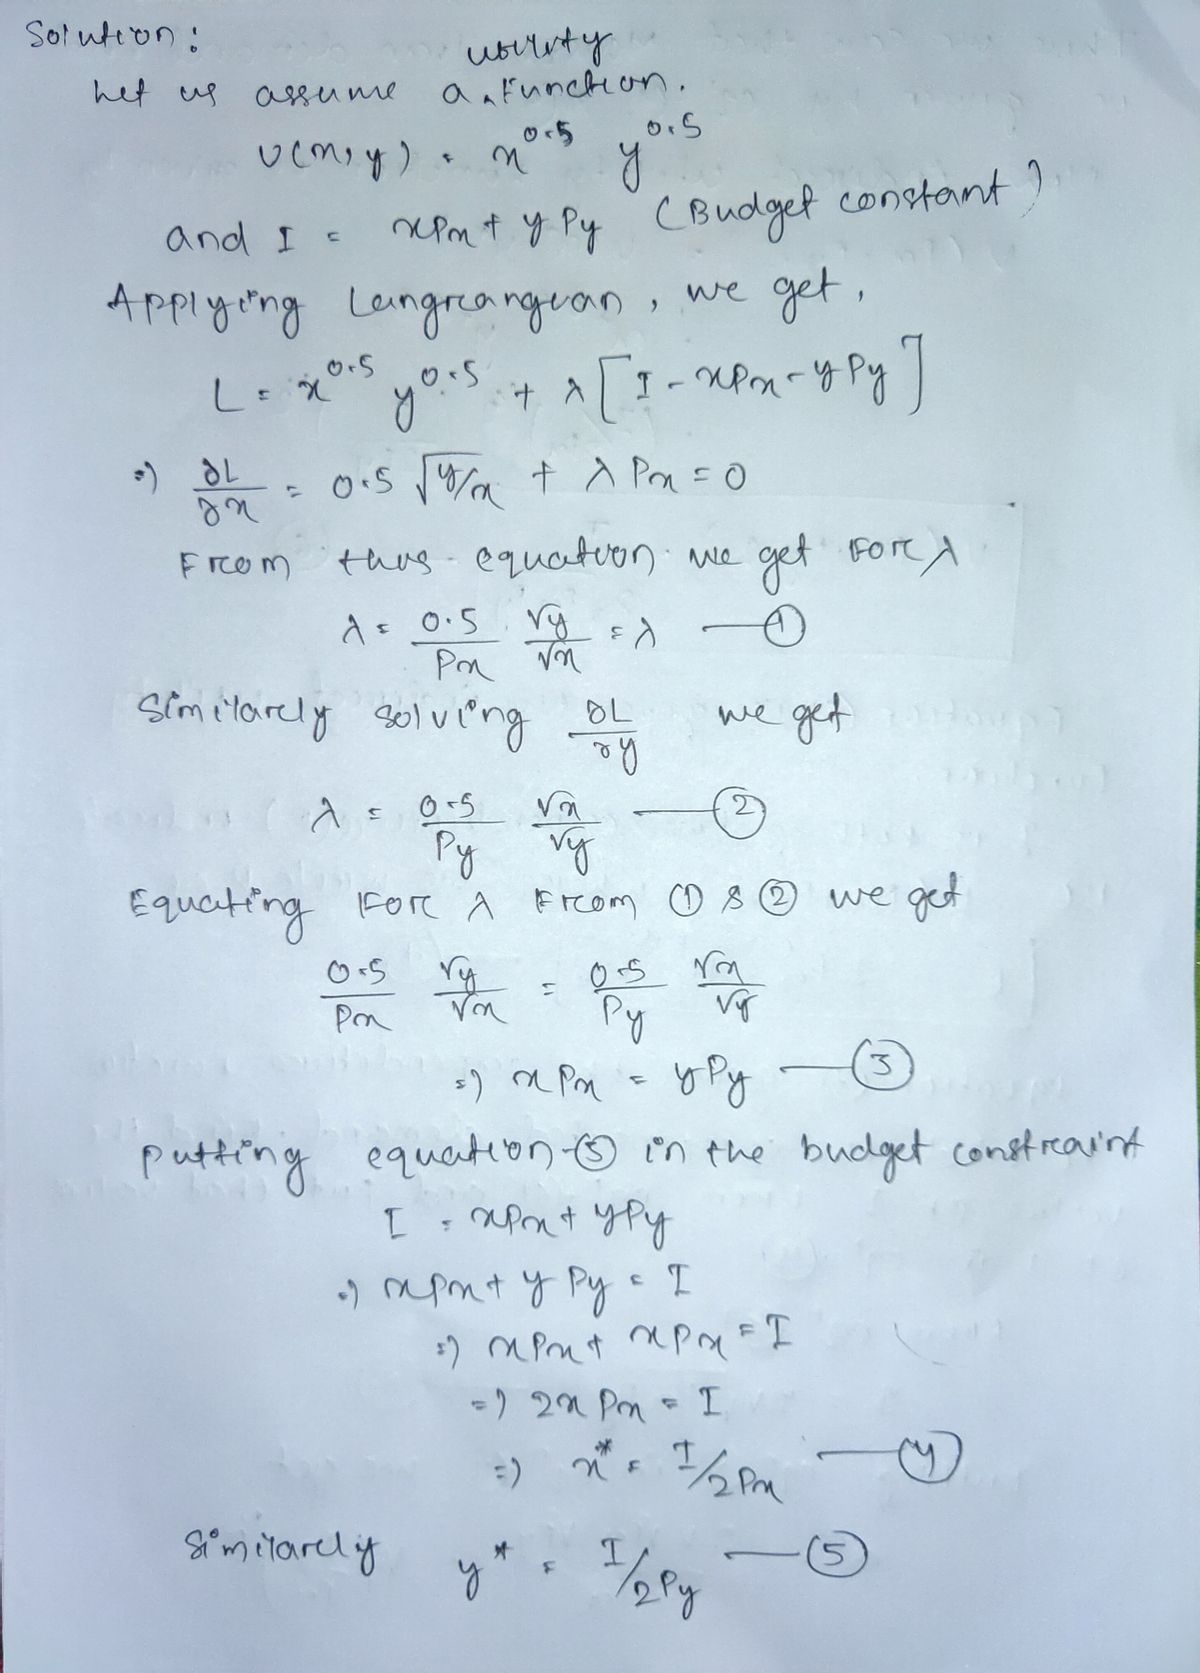 Solution:
utility
Let us assume a ‸ Function.
U(x, y) = x^0.5 y^0.5
and I = xPx + yPy (Budget constant)
Applying Langrangian, we get,
L = x^0.5 y^0.5 + λ[I - xPx - yPy]
=) ∂L/∂x = 0.5 √y/x + λ Px = 0
From this equation we get For λ
λ = 0.5/Px √y/√x = λ —①
Similarly solving ∂L/∂y we get
λ = 0.5/Py √x/√y —②
Equating For λ From ① & ② we get
0.5/Px √y/√x = 0.5/Py √x/√y
=) xPx = yPy —③
putting equation-③ in the budget constraint
I = xPx + yPy
=) xPx + yPy = I
=) xPx + xPx = I
=) 2xPx = I
=) x* = I/2Px —④
Similarly y* = I/2Py —⑤